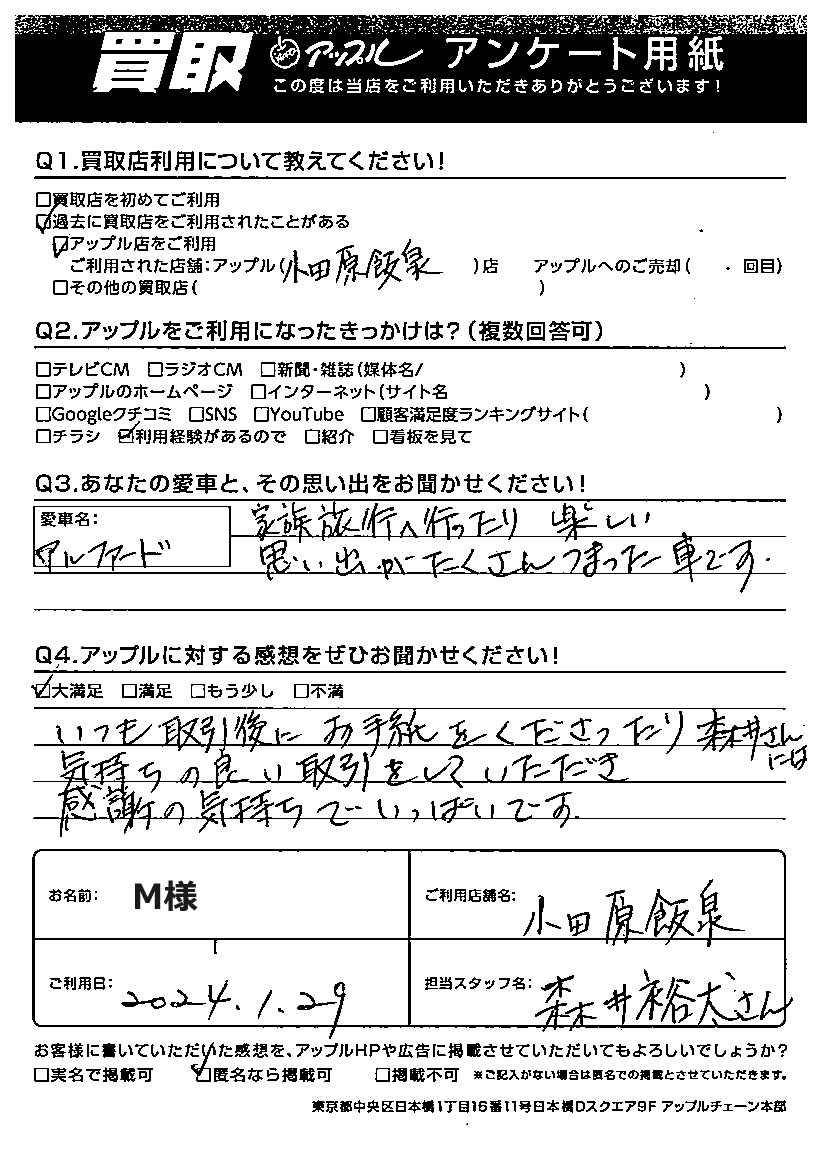 買取 アップル アンケート用紙
この度は当店をご利用いただきありがとうございます!
Q1.買取店利用について教えてください!
□買取店を初めてご利用
☑過去に買取店をご利用されたことがある
☑アップル店をご利用
ご利用された店舗:アップル(小田原飯泉 )店 アップルへのご売却( ・ 回目)
□その他の買取店( )
Q2.アップルをご利用になったきっかけは?(複数回答可)
□テレビCM □ラジオCM □新聞・雑誌(媒体名/ )
□アップルのホームページ □インターネット(サイト名 )
□Googleクチコミ □SNS □YouTube □顧客満足度ランキングサイト( )
□チラシ ☑利用経験があるので □紹介 □看板を見て
Q3.あなたの愛車と、その思い出をお聞かせください!
愛車名:
アルファード
家族旅行へ行ったり 楽しい
思い出がたくさんつまった車です.
Q4.アップルに対する感想をぜひお聞かせください!
☑大満足 □満足 □もう少し □不満
いつも取引後に お手紙をくださったり 森井さんには
気持ちの良い取引をしていただき
感謝の気持ちでいっぱいです.
お名前: M様
ご利用店舗名: 小田原飯泉
ご利用日: 2024.1.29
担当スタッフ名: 森井裕太さん
お客様に書いていただいた感想を、アップルHPや広告に掲載させていただいてもよろしいでしょうか?
□実名で掲載可 ☑匿名なら掲載可 □掲載不可 ※ご記入がない場合は匿名での掲載とさせていただきます。
東京都中央区日本橋1丁目16番11号日本橋Dスクエア9F アップルチェーン本部